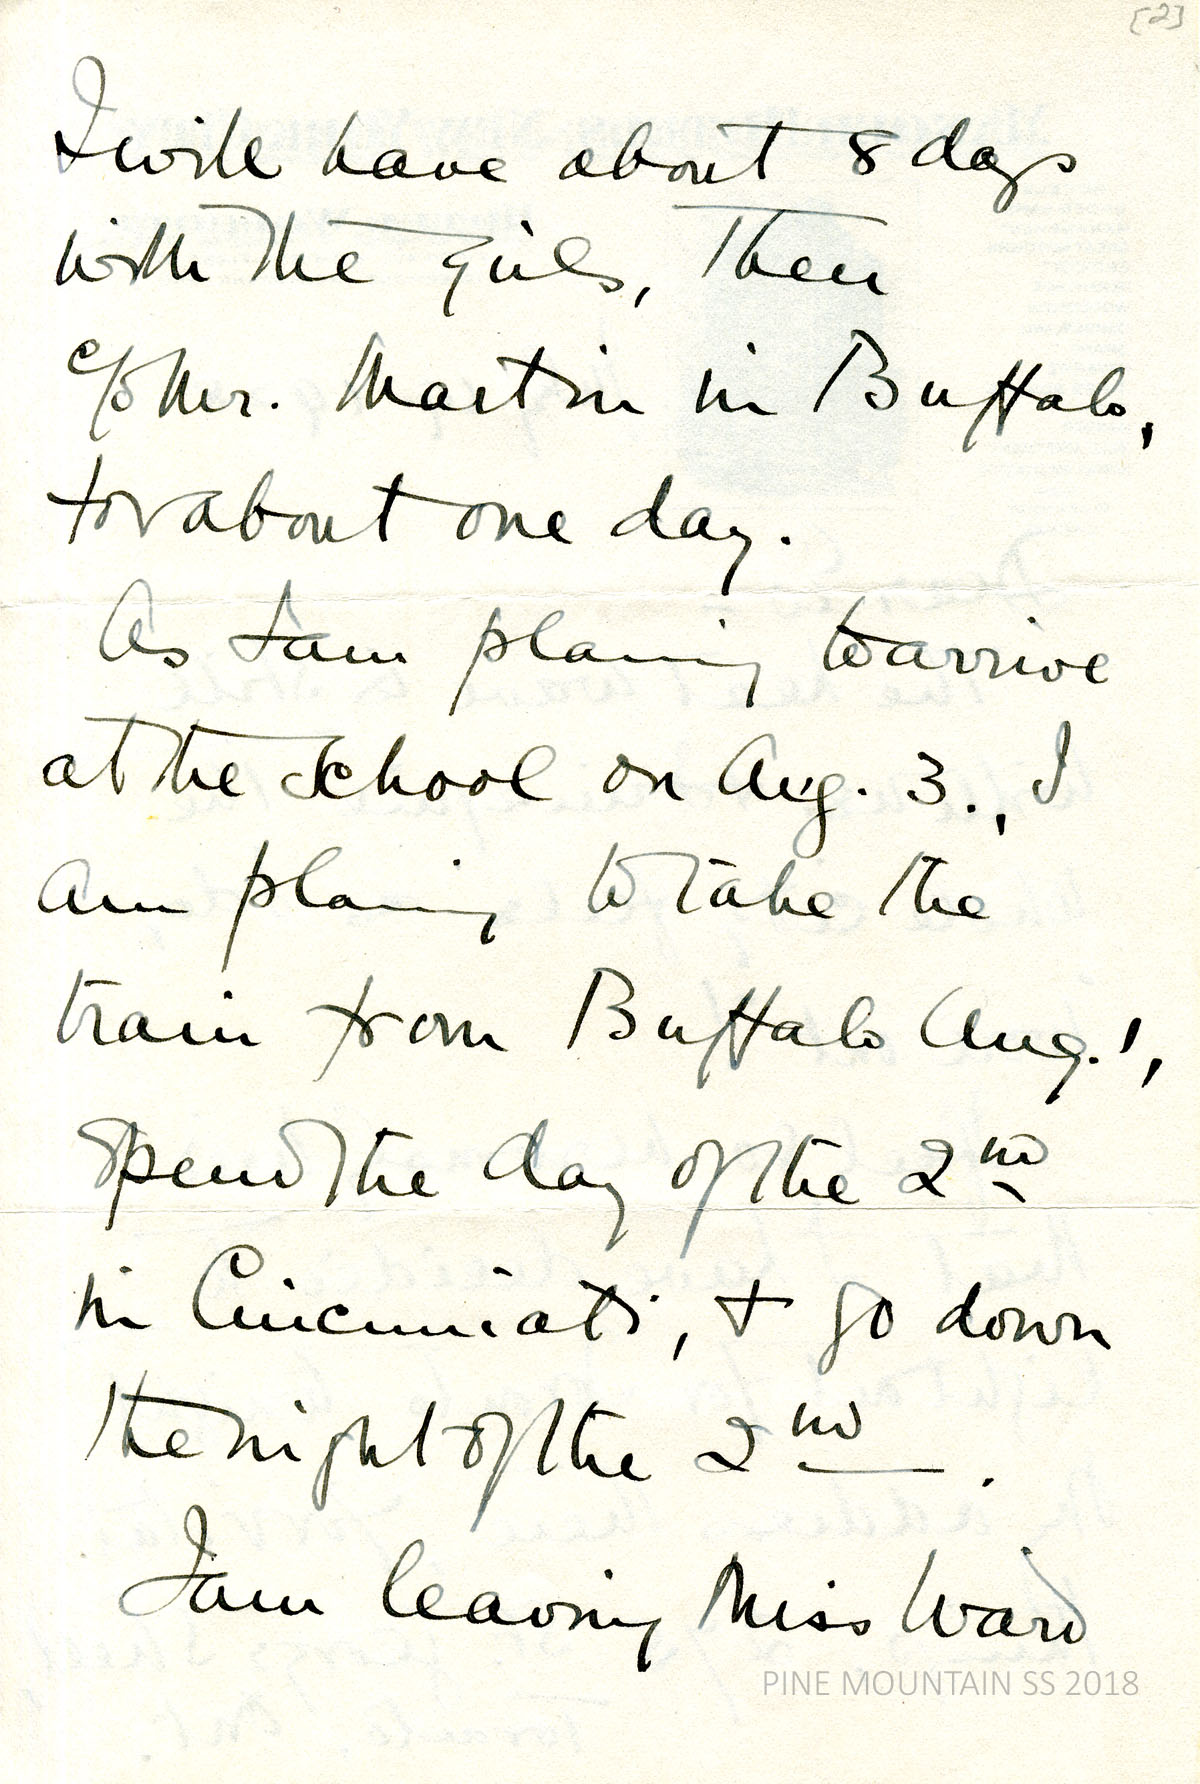 [2]
I will have about 8 days
with the girls, then
c/o Mr. Martin in Buffalo,
for about one day.
As I am planing to arrive
at the school on Aug. 3., I
am planing to take the
train from Buffalo Aug. 1,
spend the day of the 2nd
in Cincinnati, + go down
the night of the 2nd.
I am leaving Miss Ward
PINE MOUNTAIN SS 2018